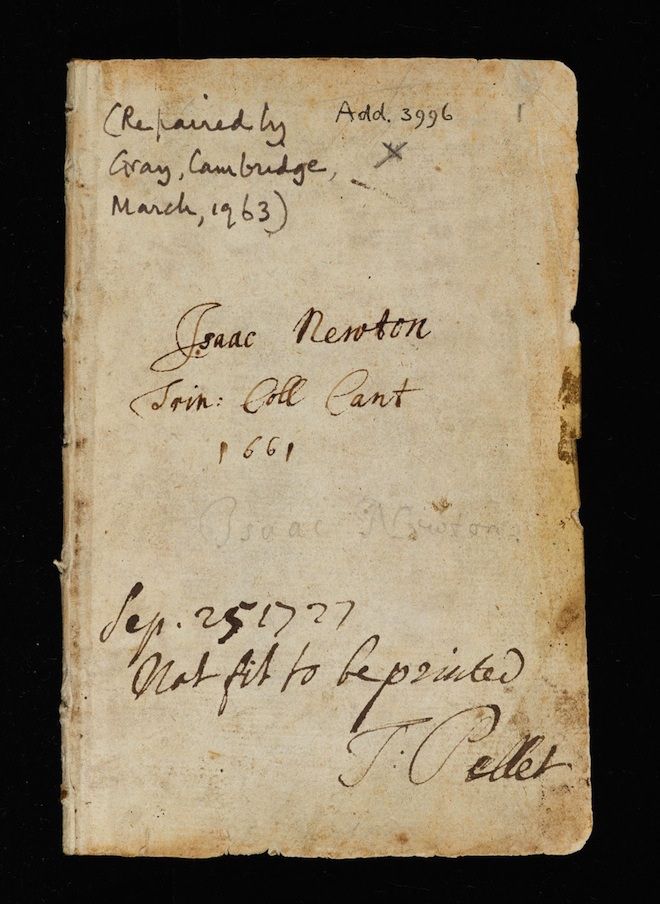 (Repaired by
Gray, Cambridge,
March, 1963)
Add. 3996
1
Isaac Newton
Trin: Coll Cant
1661
Isaac Newton.
Sep. 25 1727
Not fit to be printed
T: Pellet